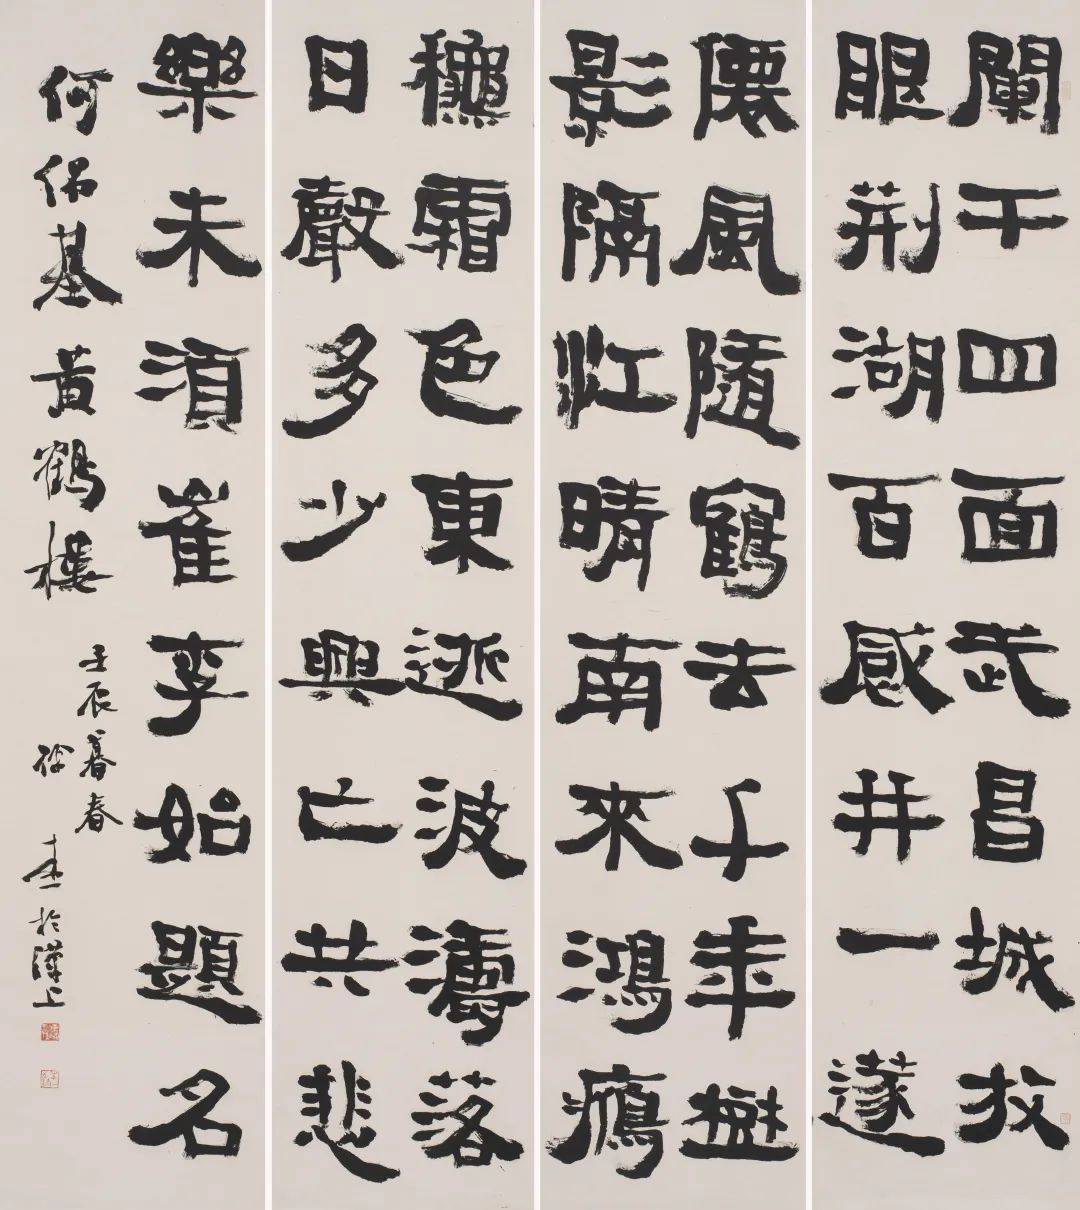 闌干四面武昌城放
眼荆湖百感并一篴
僊風隨鶴去千年樹
影隔江晴南來鴻鴈
龝霜色東逝波濤落
日聲多少興亡共悲
樂未須崔李始題名
何紹基黃鶴樓
壬辰暮春
徐本一於漢上